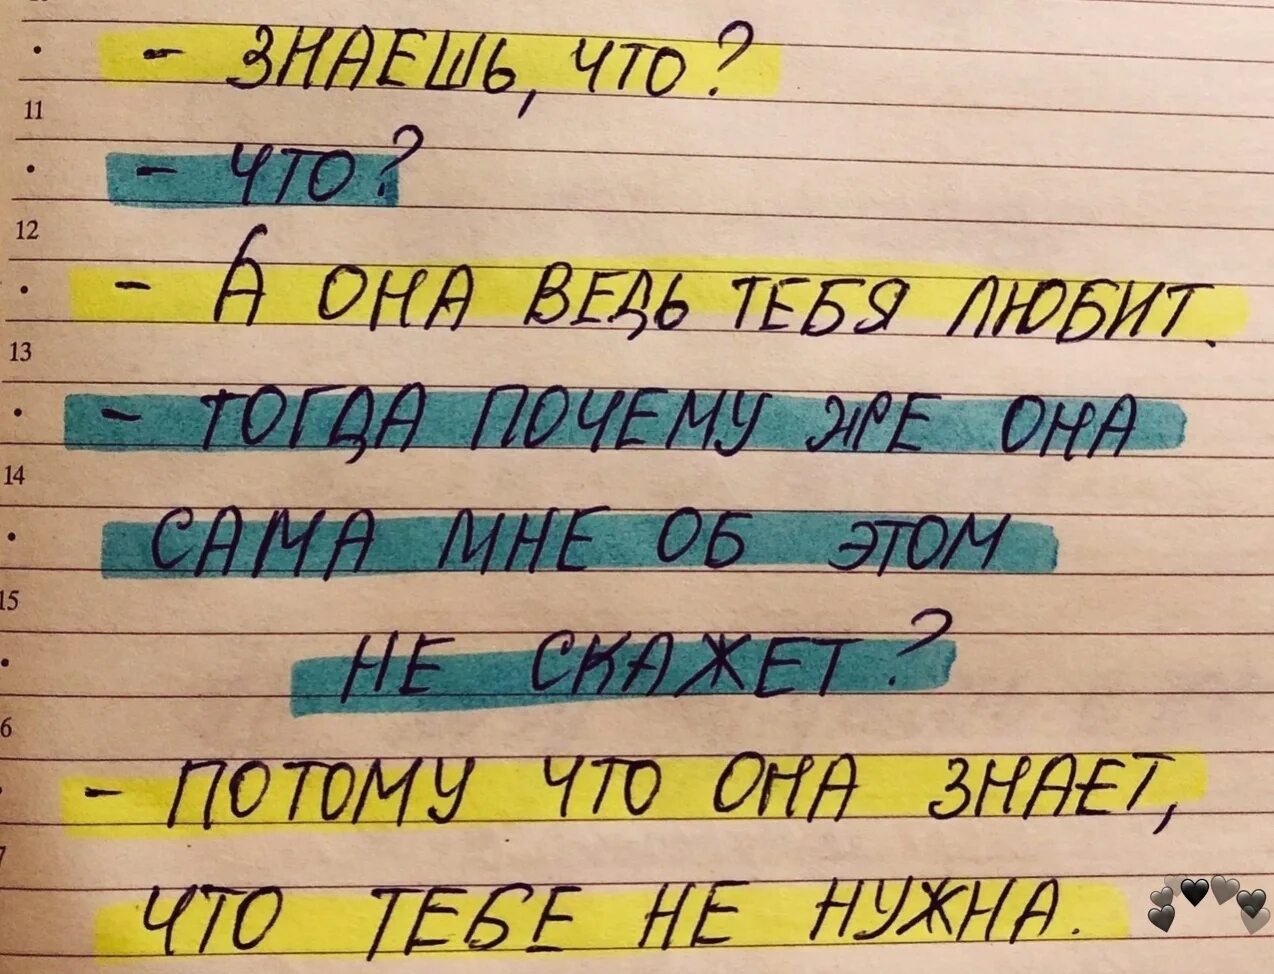 - ЗНАЕШЬ, ЧТО?
11
- ЧТО?
12
- А ОНА ВЕДЬ ТЕБЯ ЛЮБИТ.
13
- ТОГДА ПОЧЕМУ ЖЕ ОНА
14
САМА МНЕ ОБ ЭТОМ
15
НЕ СКАЖЕТ?
6
- ПОТОМУ ЧТО ОНА ЗНАЕТ,
7
ЧТО ТЕБЕ НЕ НУЖНА.